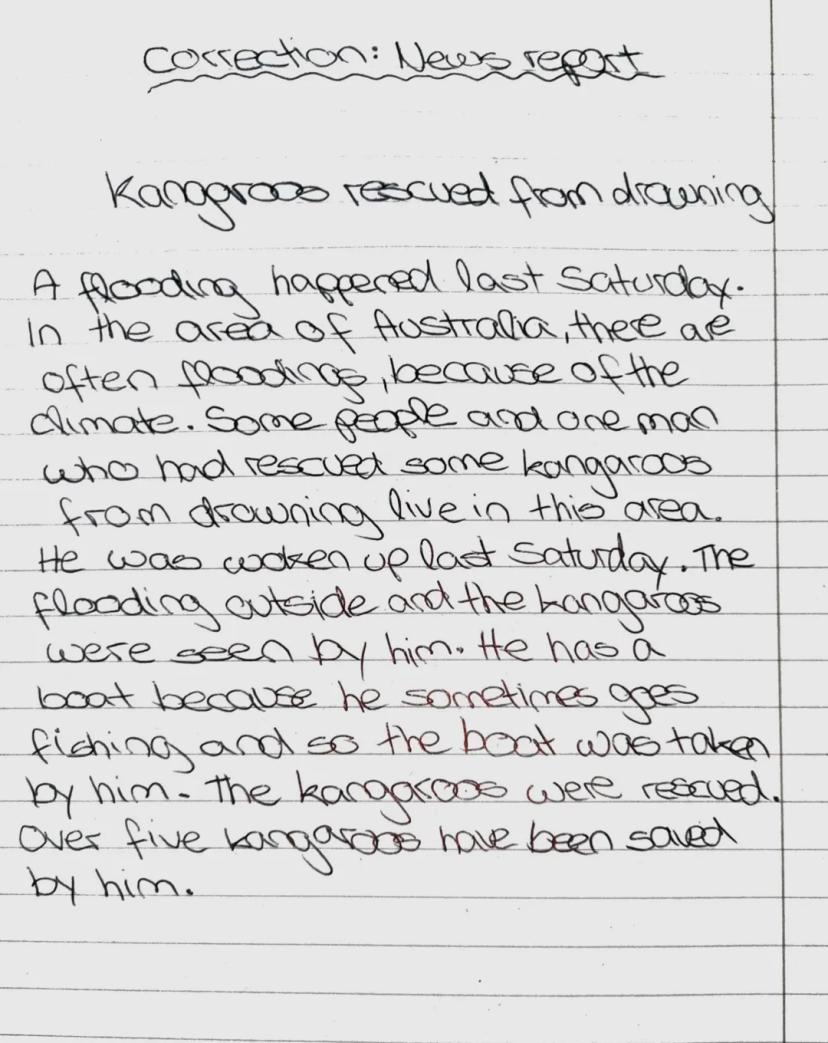 Correction: News report
Kangaroos rescued from drowning
A flooding happened last Saturday.
In the area of Australia, there are
often floodings, because of the
climate. Some people and one man
who had rescued some kangaroos
from drowning live in this area.
He was woken up last Saturday. The
flooding outside and the kangaroos
were seen by him. He has a
boat because he sometimes goes
fishing and so the boat was taken
by him. The kangaroos were rescued.
Over five kangaroos have been saved
by him.